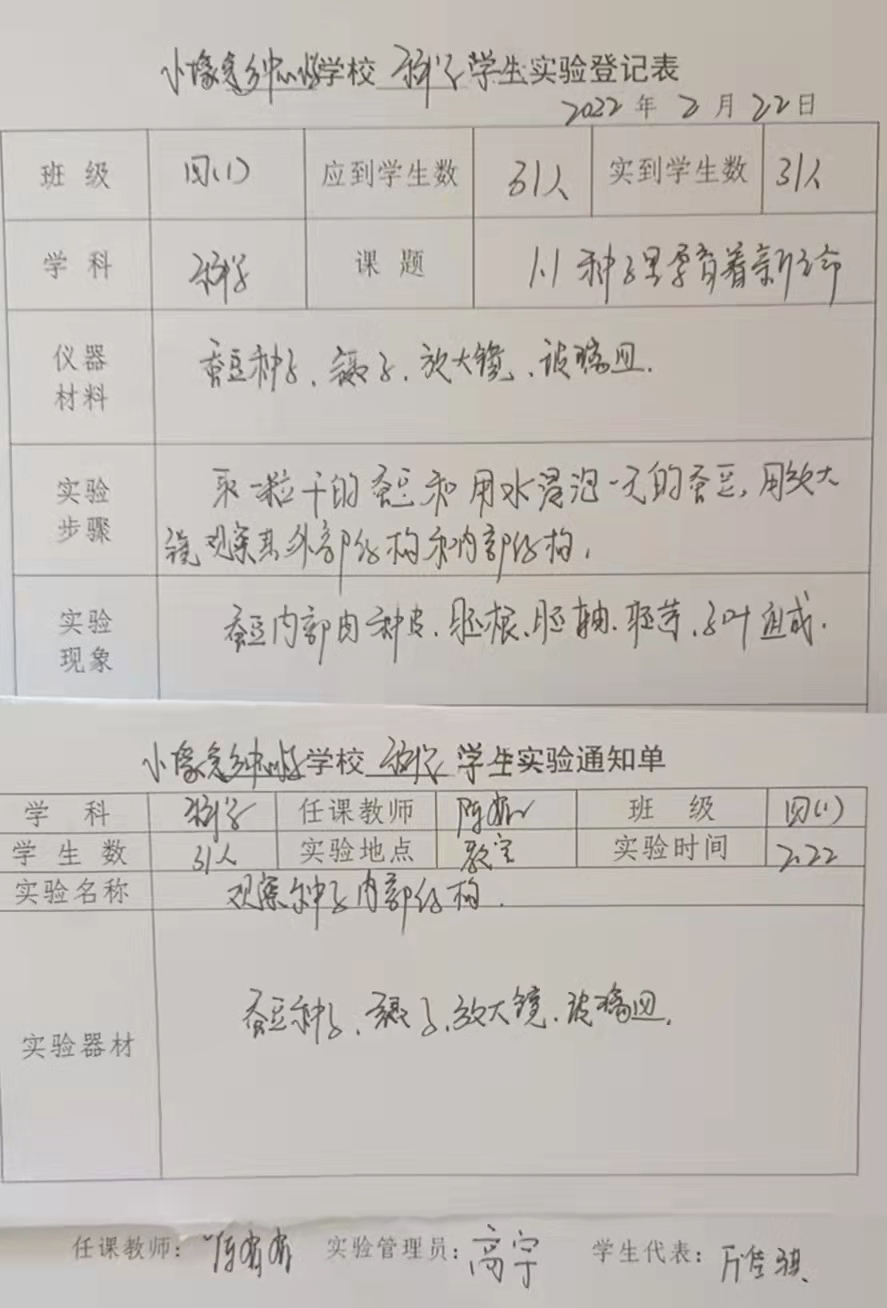 学校 科学 学生实验登记表
2022 年 2 月 22 日
班 级 四(1) 应到学生数 31人 实到学生数 31人
学 科 科学 课 题 1.1 种子里孕育着新生命
仪器材料 蚕豆种子、镊子、放大镜、玻璃皿.
实验步骤 取一粒干的蚕豆和用水浸泡一天的蚕豆,用放大
镜观察其外部结构和内部结构.
实验现象 蚕豆内部由种皮、胚根、胚轴、胚芽、子叶组成.
学校 科学 学生实验通知单
学 科 科学 任课教师 陈 班 级 四(1)
学 生 数 31人 实验地点 教室 实验时间 2.22
实验名称 观察种子内部结构.
实验器材 蚕豆种子、镊子、放大镜、玻璃皿.
任课教师: 陈 实验管理员: 高宁 学生代表: